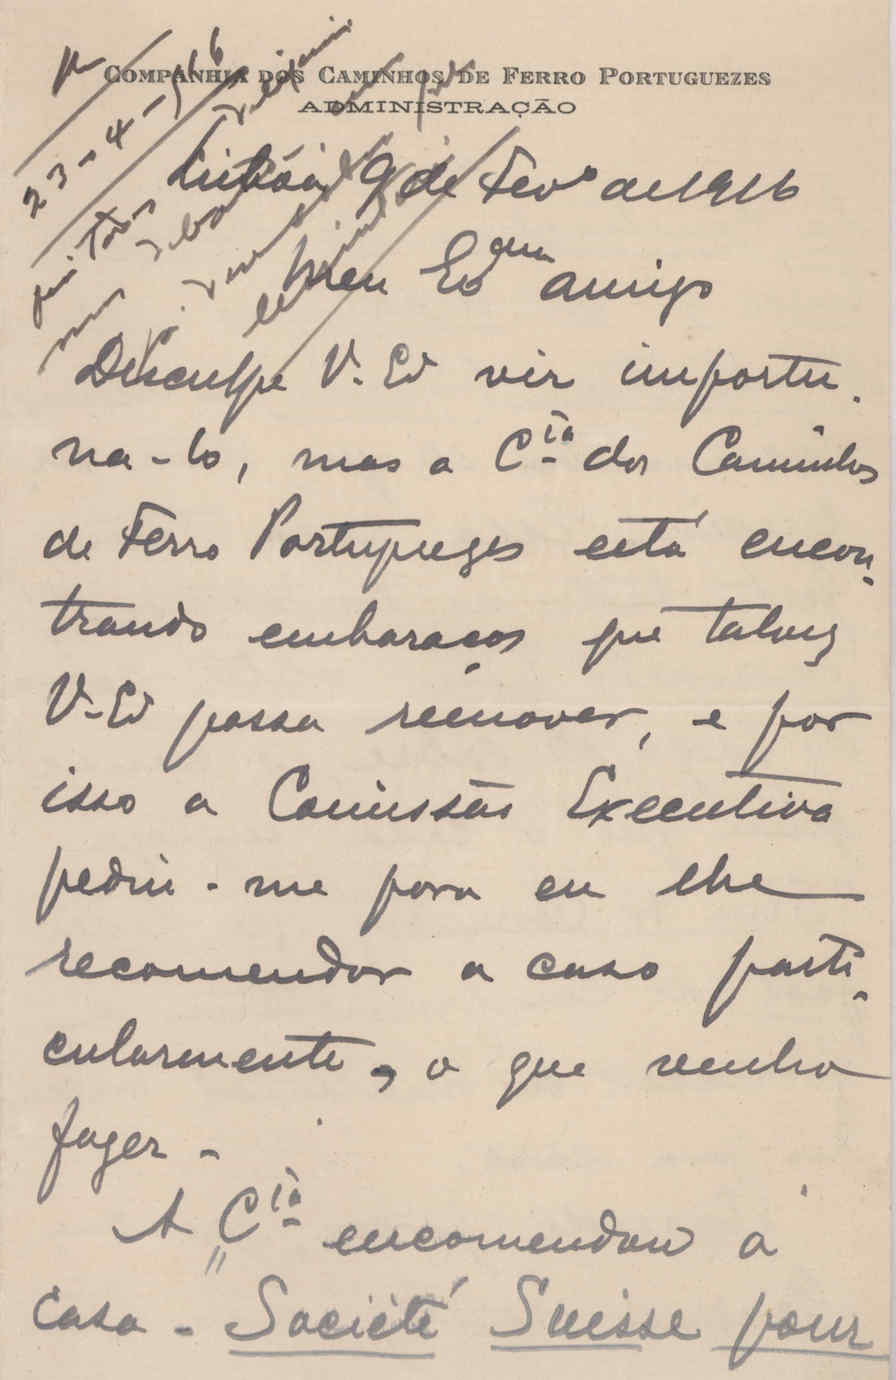 Companhia dos Caminhos de Ferro Portuguezes
Administração
23-4-916
Lisboa 9 de Fevº de 1916
Meu Exmo amigo
Desculpe V. Ex vir importu-
na-lo, mas a Cia dos Caminhos
de Ferro Portuguezes está encon-
trando embaraços que talvez
V. Ex possa remover, e por
isso a Comissão Executiva
pediu-me para eu lhe
recomendar o caso parti-
cularmente, o que venho
fazer.
A Cia encomendou á
casa - Societé Suisse pour